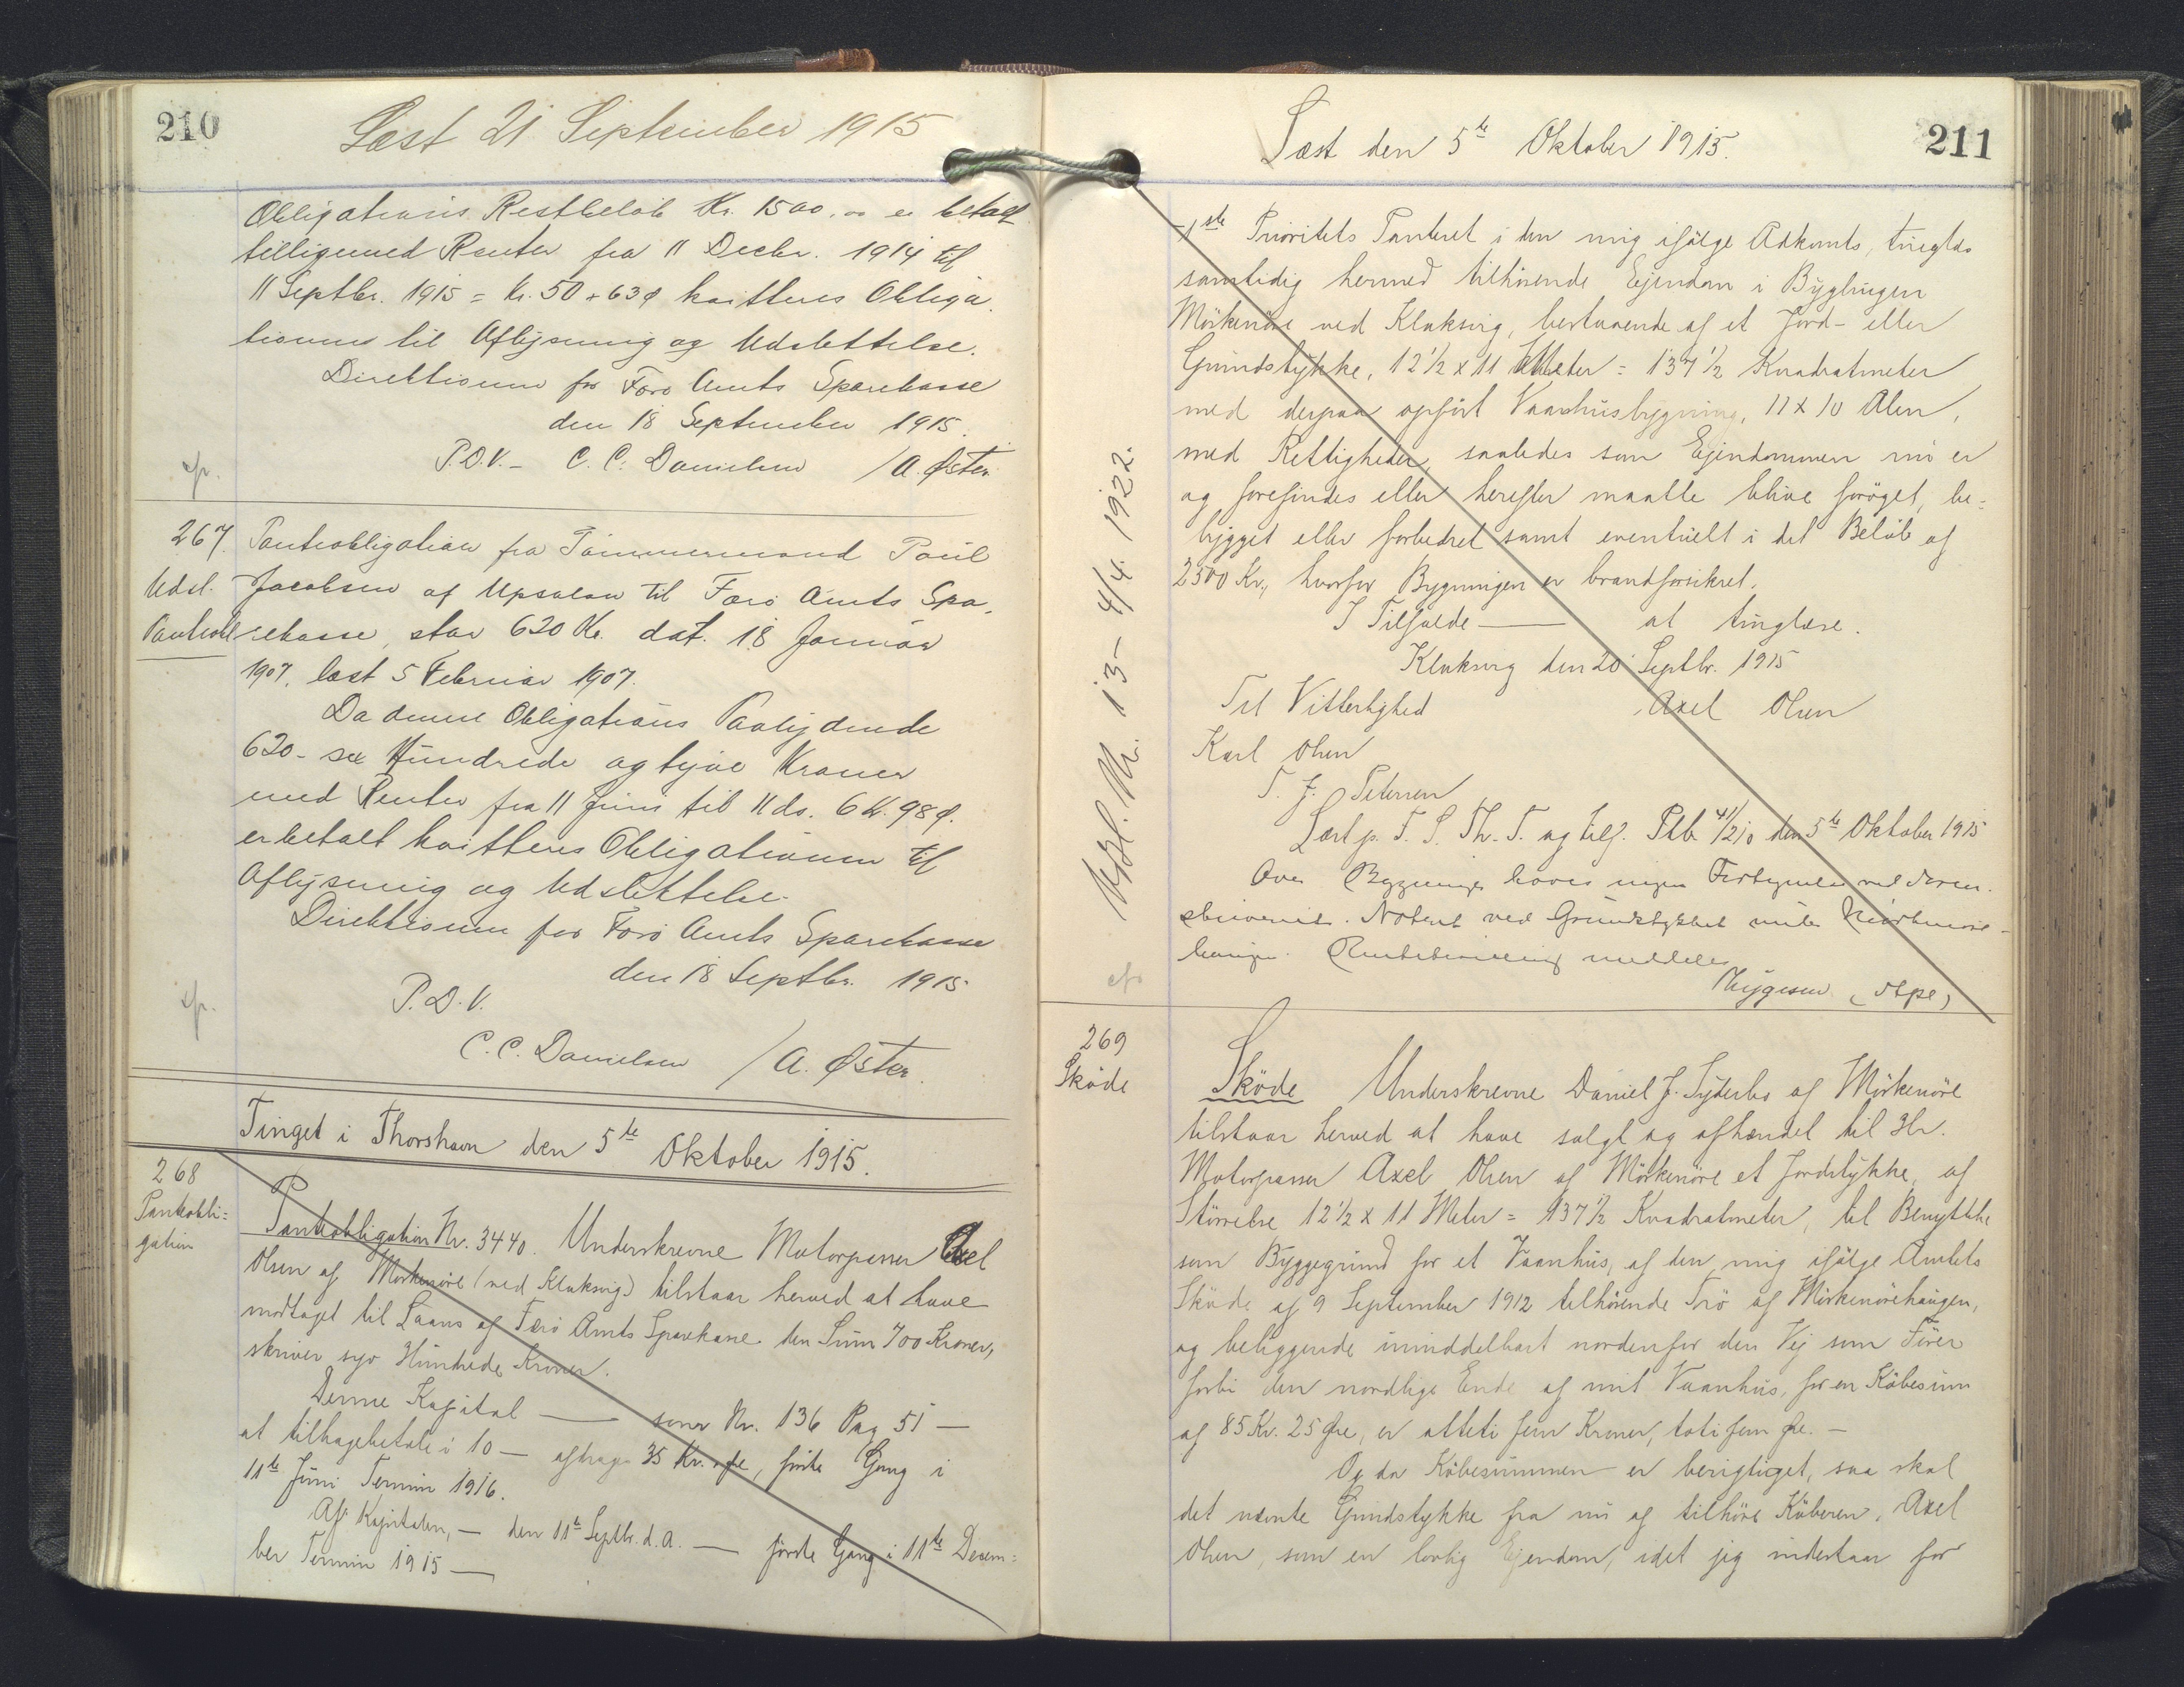 210
Læst 21 September 1915
Obligations Restbeløb Kr. 1500,00 er betalt
tilligemed Renter fra 11 Decbr. 1914 til
11 Septbr. 1915 = Kr. 50 + 63 Ø kvitteres Obliga-
tionen til Aflysning og Udslettelse.
Direktionen for Færø Amts Sparekasse
den 18 September 1915.
P.D.V. - C.C. Danielsen / A. Øster.
267.
Udsl.
Panteobl
Panteobligation fra Tømmermand Poul
Jacobsen af Upsalen til Færø Amts Spa-
rekasse, stor 620 Kr. dat. 18 Januar
1907, læst 5 Februar 1907.
Da denne Obligations Paalydende
620 - sex Hundrede og tyve Kroner
med Renter fra 11 Juni til 11 ds. 6 Kr. 98 Ø.
er betalt kvitteres Obligationen til
Aflysning og Udslettelse.
Direktionen for Færø Amts Sparekasse
den 18 Septbr. 1915
P.D.V.
C.C. Danielsen / A. Øster.
Tinget i Thorshavn den 5te Oktober 1915.
268
Panteobli=
gation
Panteobligation Nr. 3440. Underskrevne Motorpasser Axel
Olsen af Mörkenöre (ved Klaksvig) tilstaar herved at have
modtaget til Laans af Færö Amts Sparekasse den Sum 700 Kroner,
skriver syv Hundrede Kroner.
Denne Kapital — som Nr. 136 Pag 51 —
at tilbagebetale i 10 — afdrage 35 Kr. " Øre, förste Gang i
11te Juni Termin 1916.
Af Kapitalen, — den 11te Septbr. d.A. — förste Gang i 11te Decem=
ber Termin 1915 —
211
Læst den 5te Oktober 1915.
Udsl. Nr. 13 - 4/4. 1922.
1ste Prioritets Panteret i den mig ifölge Adkomts, tinglæs
samtidig hermed tilhörende Ejendom i Bygningen
Mörkenöre ved Klaksvig, bestaaende af et Jord- eller
Grundstykke, 12½ x 11 Meter = 137½ Kvadratmeter
med derpaa opfört Vaanhusbygning, 11 x 10 Alen,
med Rettigheder, saaledes som Ejendommen nu er
og forefindes eller herefter maatte blive foröget, be=
bygget eller forbedret samt eventuelt i det Belöb af
2300 Kr., hvorfor Bygningen er brandforsikret.
I Tilfælde — at tinglæse.
Klaksvig den 20 Septbr. 1915
Til Vitterlighed Axel Olsen
Karl Olsen
T. J. Petersen
Læst p. F. S. Th. T. og tilf. Ptb. 41/210 den 5te Oktober 1915
Over Bygningen haves ingen Fortegnelse ved Soren-
skriveriet. Noteret ved Grundstykket under Mörkenöre-
haugen. meddeles
269
Sköde
Sköde Underskrevne Daniel J. Syderbö af Mörkenöre
tilstaar herved at have solgt og afhændet til Hr.
Motorpasser Axel Olsen af Mörkenöre et Jordstykke, af
Störrelse 12½ x 11 Meter = 137½ Kvadratmeter, til Benyttelse
som Byggegrund for et Vaanhus, af den mig ifölge Amtets
Sköde af 9 September 1912 tilhörende Trö af Mörkenörehaugen,
og beliggende umiddelbart nordenfor den Vej som Förer
forbi den nordlige Ende af mit Vaanhus, for en Köbesum
af 85 Kr. 25 Øre, er otteti fem Kroner, toti fem Øre. —
Og da Köbesummen er berigtiget, saa skal
det nævnte Grundstykke fra nu af tilhöre Köberen, Axel
Olsen, som en lovlig Ejendom, idet jeg indestaar for